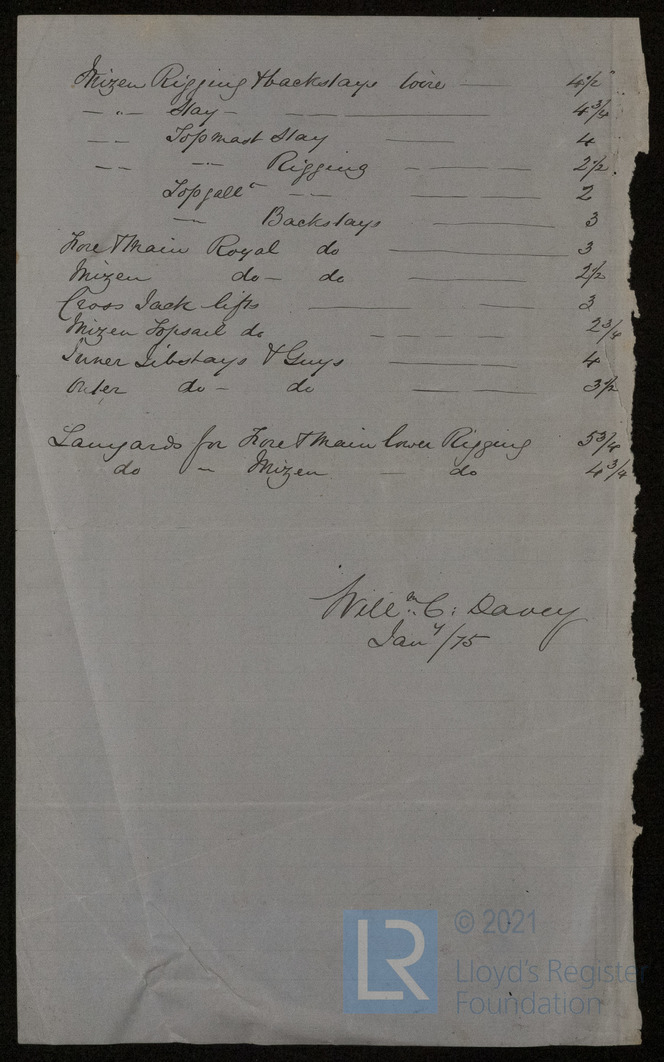 Mizen Rigging & backstays wire — 4½"
— " — Stay — — — — 4¾
— — Topmast Stay — 4
— — — " — Rigging — — — 2½
Topgallt — — — — 2
— " — Backstays — 3
Fore & Main Royal do — 3
Mizen do — do — — — 2½
Cross Jack lifts — — 3
Mizen Topsail do — — — 2¾
Inner Jibstays & Guys — 4
Outer do — do — 3½
Lanyards for Fore & Main lower Rigging 5¾
do — Mizen — do 4¾
Willm. C: Davey
Jany/75
© 2021
LR
Lloyd's Register
Foundation